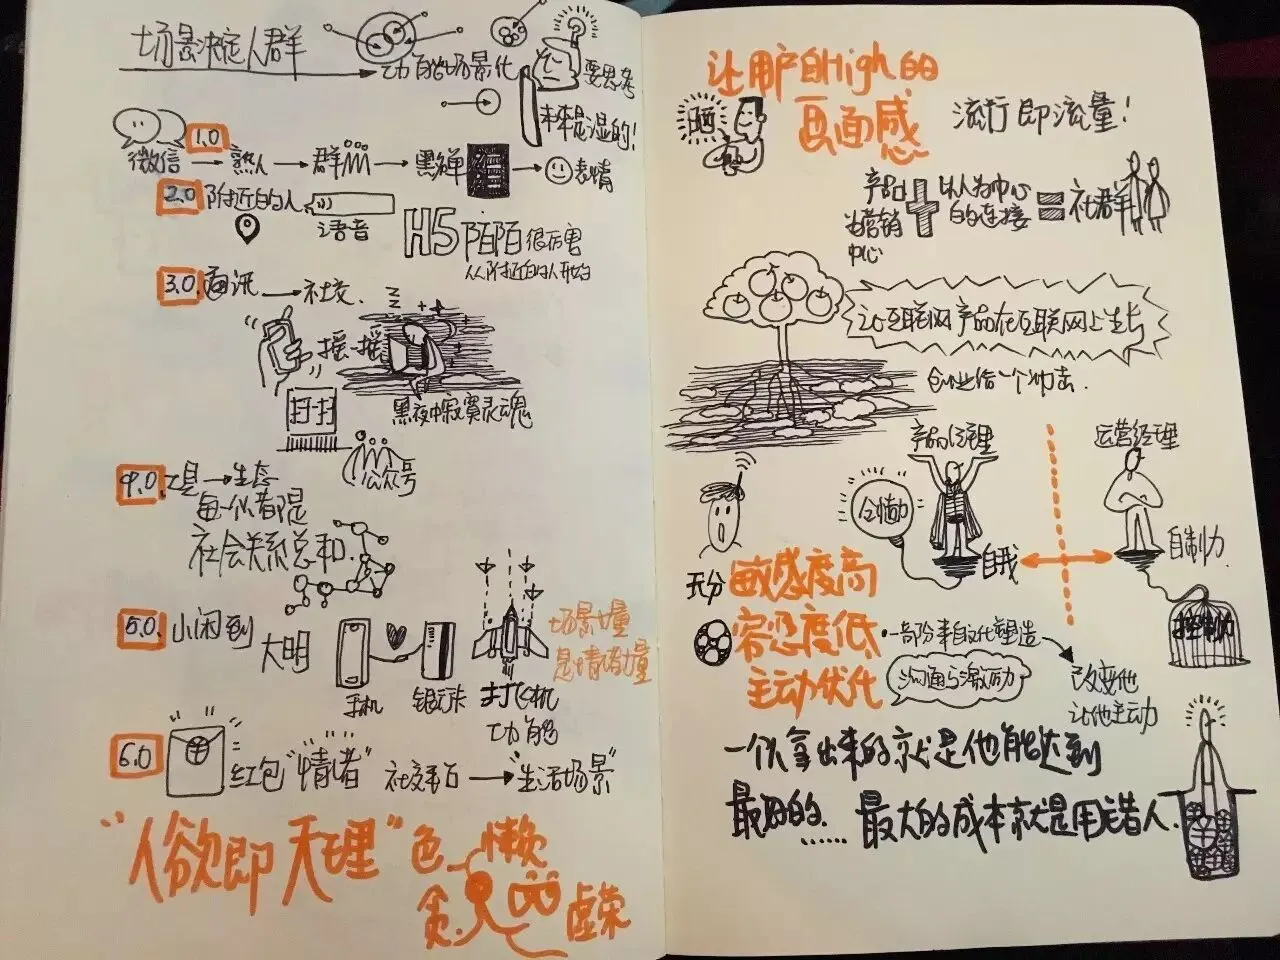 场景决定人群
功能场景化
要思考
未来是湿的!
1.0
微信 熟人 群 黑禅 表情
2.0 附近的人 语音
H5 陌陌很厉害
从附近的人开始
3.0 通讯 社交.
zz
摇一摇
扫扫
黑夜中寂寞灵魂
公众号
4.0 工具 生态
每一个人都是
社会关系总和.
5.0 小闲到
大明
手机
银行卡
打飞机
功能
场景士量
是情绪士量
6.0
红包 "情绪" 社交 "生活场景"
"人欲即天理" 色 懒
贪 虚荣
让用户自High的
画面感
晒
流行即流量!
产品
为营销
中心
以人为中心
的连接
=
社群
让互联网产品在互联网上生长
创业给一个冲击.
产品经理
运营经理
自我
自制力
控制力
敏感度高
容忍度低
主动优化
一部分来自文化塑造
沟通与激励力
改变他
让他主动
一个人拿出来的就是他能达到
最好的. ...... 最大的成本就是用错人.